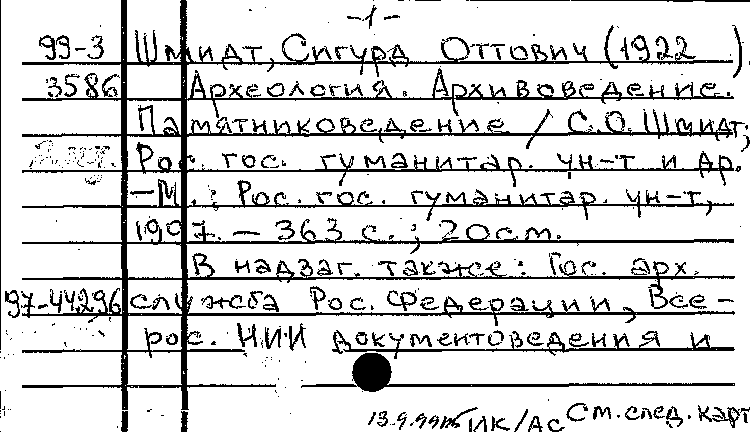 -1-
99-3 Шмидт, Сигурд Оттович (1922 ).
3586 Археология. Архивоведение.
Памятниковедение / С.О. Шмидт;
Рос. гос. гуманитар. ун-т и др.
-М.: Рос. гос. гуманитар. ун-т,
1997. - 363 с.; 20см.
В надзаг. также: Гос. арх.
97-44296 служба Рос. Федерации, Все-
рос. НИИ документоведения и
13.9.99 ИК/АС См. след. карт